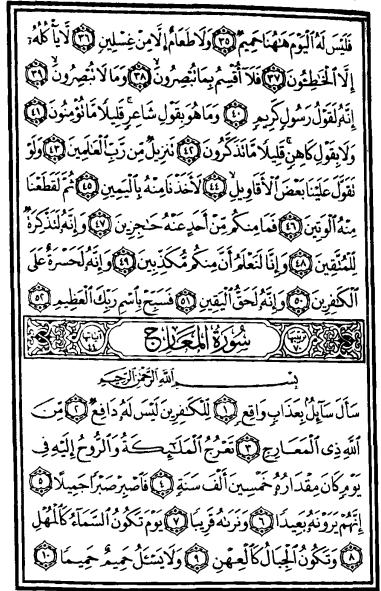 فَلَيْسَ لَهُ ٱلْيَوْمَ هَٰهُنَا حَمِيمٌ ٣٥ وَلَا طَعَامٌ إِلَّا مِنْ غِسْلِينٍ ٣٦ لَّا يَأْكُلُهُۥٓ
إِلَّا ٱلْخَٰطِـُٔونَ ٣٧ فَلَآ أُقْسِمُ بِمَا تُبْصِرُونَ ٣٨ وَمَا لَا تُبْصِرُونَ ٣٩
إِنَّهُۥ لَقَوْلُ رَسُولٍ كَرِيمٍ ٤٠ وَمَا هُوَ بِقَوْلِ شَاعِرٍ ۚ قَلِيلًا مَّا تُؤْمِنُونَ ٤١
وَلَا بِقَوْلِ كَاهِنٍ ۚ قَلِيلًا مَّا تَذَكَّرُونَ ٤٢ تَنزِيلٌ مِّن رَّبِّ ٱلْعَٰلَمِينَ ٤٣ وَلَوْ
تَقَوَّلَ عَلَيْنَا بَعْضَ ٱلْأَقَاوِيلِ ٤٤ لَأَخَذْنَا مِنْهُ بِٱلْيَمِينِ ٤٥ ثُمَّ لَقَطَعْنَا
مِنْهُ ٱلْوَتِينَ ٤٦ فَمَا مِنكُم مِّنْ أَحَدٍ عَنْهُ حَٰجِزِينَ ٤٧ وَإِنَّهُۥ لَتَذْكِرَةٌ
لِّلْمُتَّقِينَ ٤٨ وَإِنَّا لَنَعْلَمُ أَنَّ مِنكُم مُّكَذِّبِينَ ٤٩ وَإِنَّهُۥ لَحَسْرَةٌ عَلَى
ٱلْكَٰفِرِينَ ٥٠ وَإِنَّهُۥ لَحَقُّ ٱلْيَقِينِ ٥١ فَسَبِّحْ بِٱسْمِ رَبِّكَ ٱلْعَظِيمِ ٥٢
ترتيبها ٧٠ سُورَةُ الْمَعَارِجِ آياتها ٤٤
بِسْمِ ٱللَّهِ ٱلرَّحْمَٰنِ ٱلرَّحِيمِ
سَأَلَ سَآئِلٌۢ بِعَذَابٍ وَاقِعٍ ١ لِّلْكَٰفِرِينَ لَيْسَ لَهُۥ دَافِعٌ ٢ مِّنَ
ٱللَّهِ ذِى ٱلْمَعَارِجِ ٣ تَعْرُجُ ٱلْمَلَٰٓئِكَةُ وَٱلرُّوحُ إِلَيْهِ فِى
يَوْمٍ كَانَ مِقْدَارُهُۥ خَمْسِينَ أَلْفَ سَنَةٍ ٤ فَٱصْبِرْ صَبْرًا جَمِيلًا ٥
إِنَّهُمْ يَرَوْنَهُۥ بَعِيدًا ٦ وَنَرَىٰهُ قَرِيبًا ٧ يَوْمَ تَكُونُ ٱلسَّمَآءُ كَٱلْمُهْلِ
٨ وَتَكُونُ ٱلْجِبَالُ كَٱلْعِهْنِ ٩ وَلَا يَسْـَٔلُ حَمِيمٌ حَمِيمًا ١٠